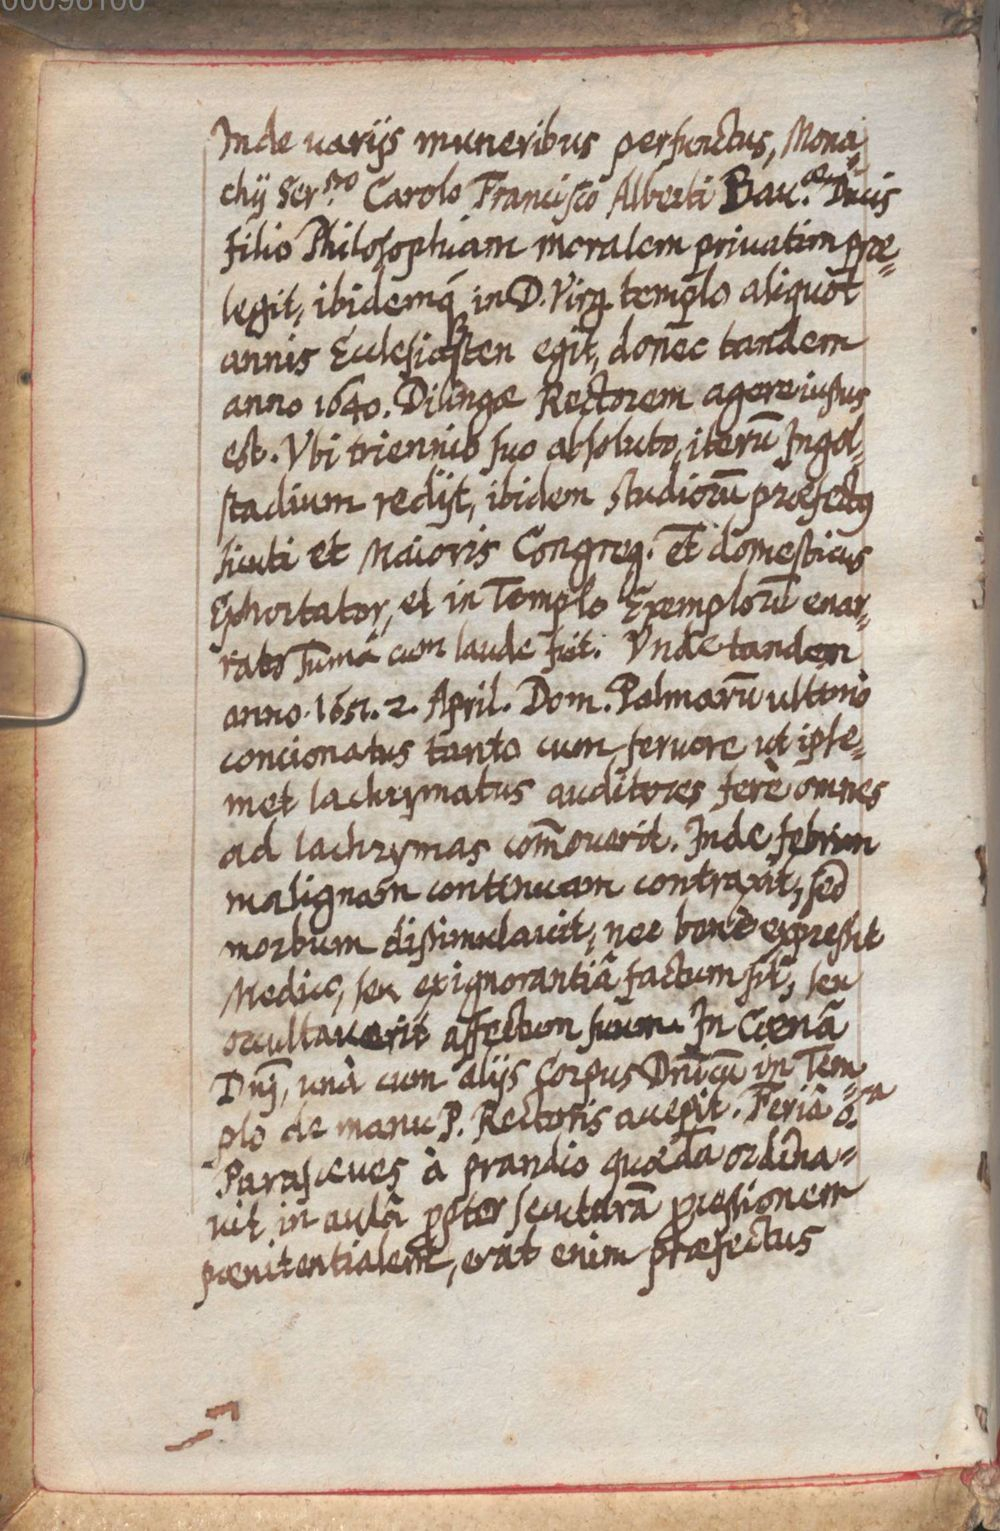 00096100
Inde uarijs muneribus perfunctus, Mona
chij Ser.mo Carolo Francisco Alberti Bau.æ Ducis
filio Philosophiam moralem priuatim præ=
legit, ibidemq́ in D. Virg. templo aliquot
annis Ecclesiasten egit, donec tandem
anno 1640. Dilingæ Rectorem agere iussus
est. Vbi triennio suo absoluto, iterū Ingol=
stadium redijt, ibidem studiorū præfectus
sicuti et Maioris Congreg. et domesticus
Exhortator, et in Templo Exemplorū enar=
rator sum̄a cum laude fuit. Vnde tandem
anno. 1651. 2. April. Dom. Palmarū ultimò
concionatus tanto cum feruore ut ipse=
met lachrymatus auditores ferè omnes
ad lachrymas com̄ouerit. Inde febrim
malignam continuam contraxit, sed
morbum dissimulauit, nec benè expressit
Medicus, seu ex ignorantiâ factum sit, seu
occultauerit affectum suum. In Cœnâ
Dnj, unà cum alijs Corpus Dnicū in Tem=
plo de manu P. Rectoris accepit. Feriâ 6.ta
Parasceues à prandio quædā ordina=
uit in aulâ propter secuturā processionem
pœnitentialem, erat enim præfectus